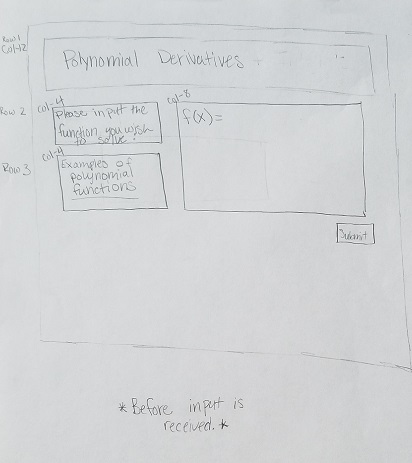 Row 1
Col-12
Polynomial Derivatives
Row 2
col-4
Please input the
function you wish
to solve:
col-8
f(x)=
Row 3
col-4
Examples of
polynomial
functions
Submit
*Before input is
received.*